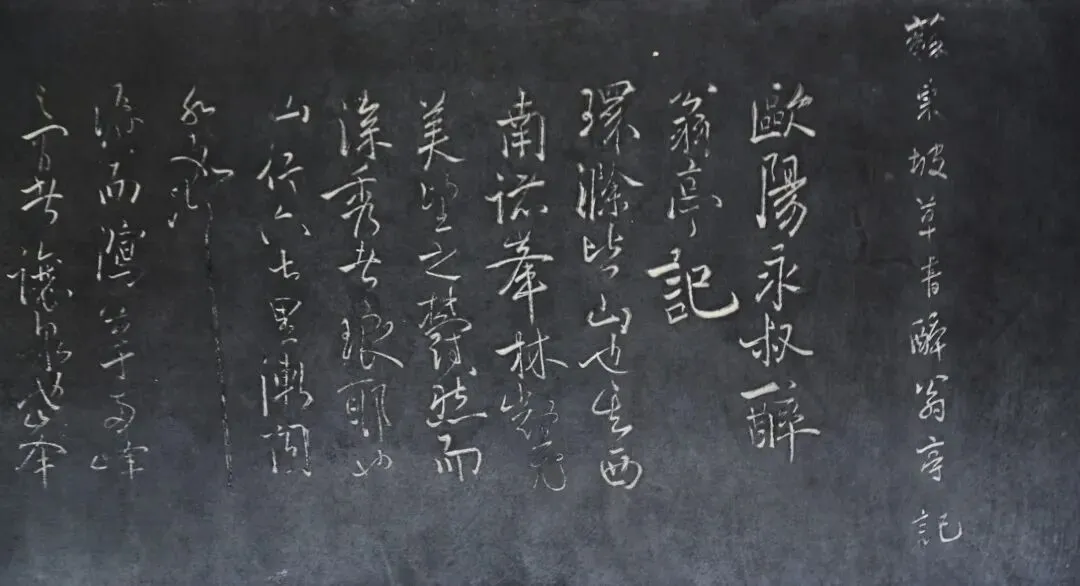 蘇東坡草書醉翁亭記
歐陽永叔醉
翁亭記
環滁皆山也其西
南諸峯林壑尤
美望之蔚然而
深秀者琅耶也
山行六七里漸聞
水聲潺
潺而瀉出于两峰
之間者讓泉也峯